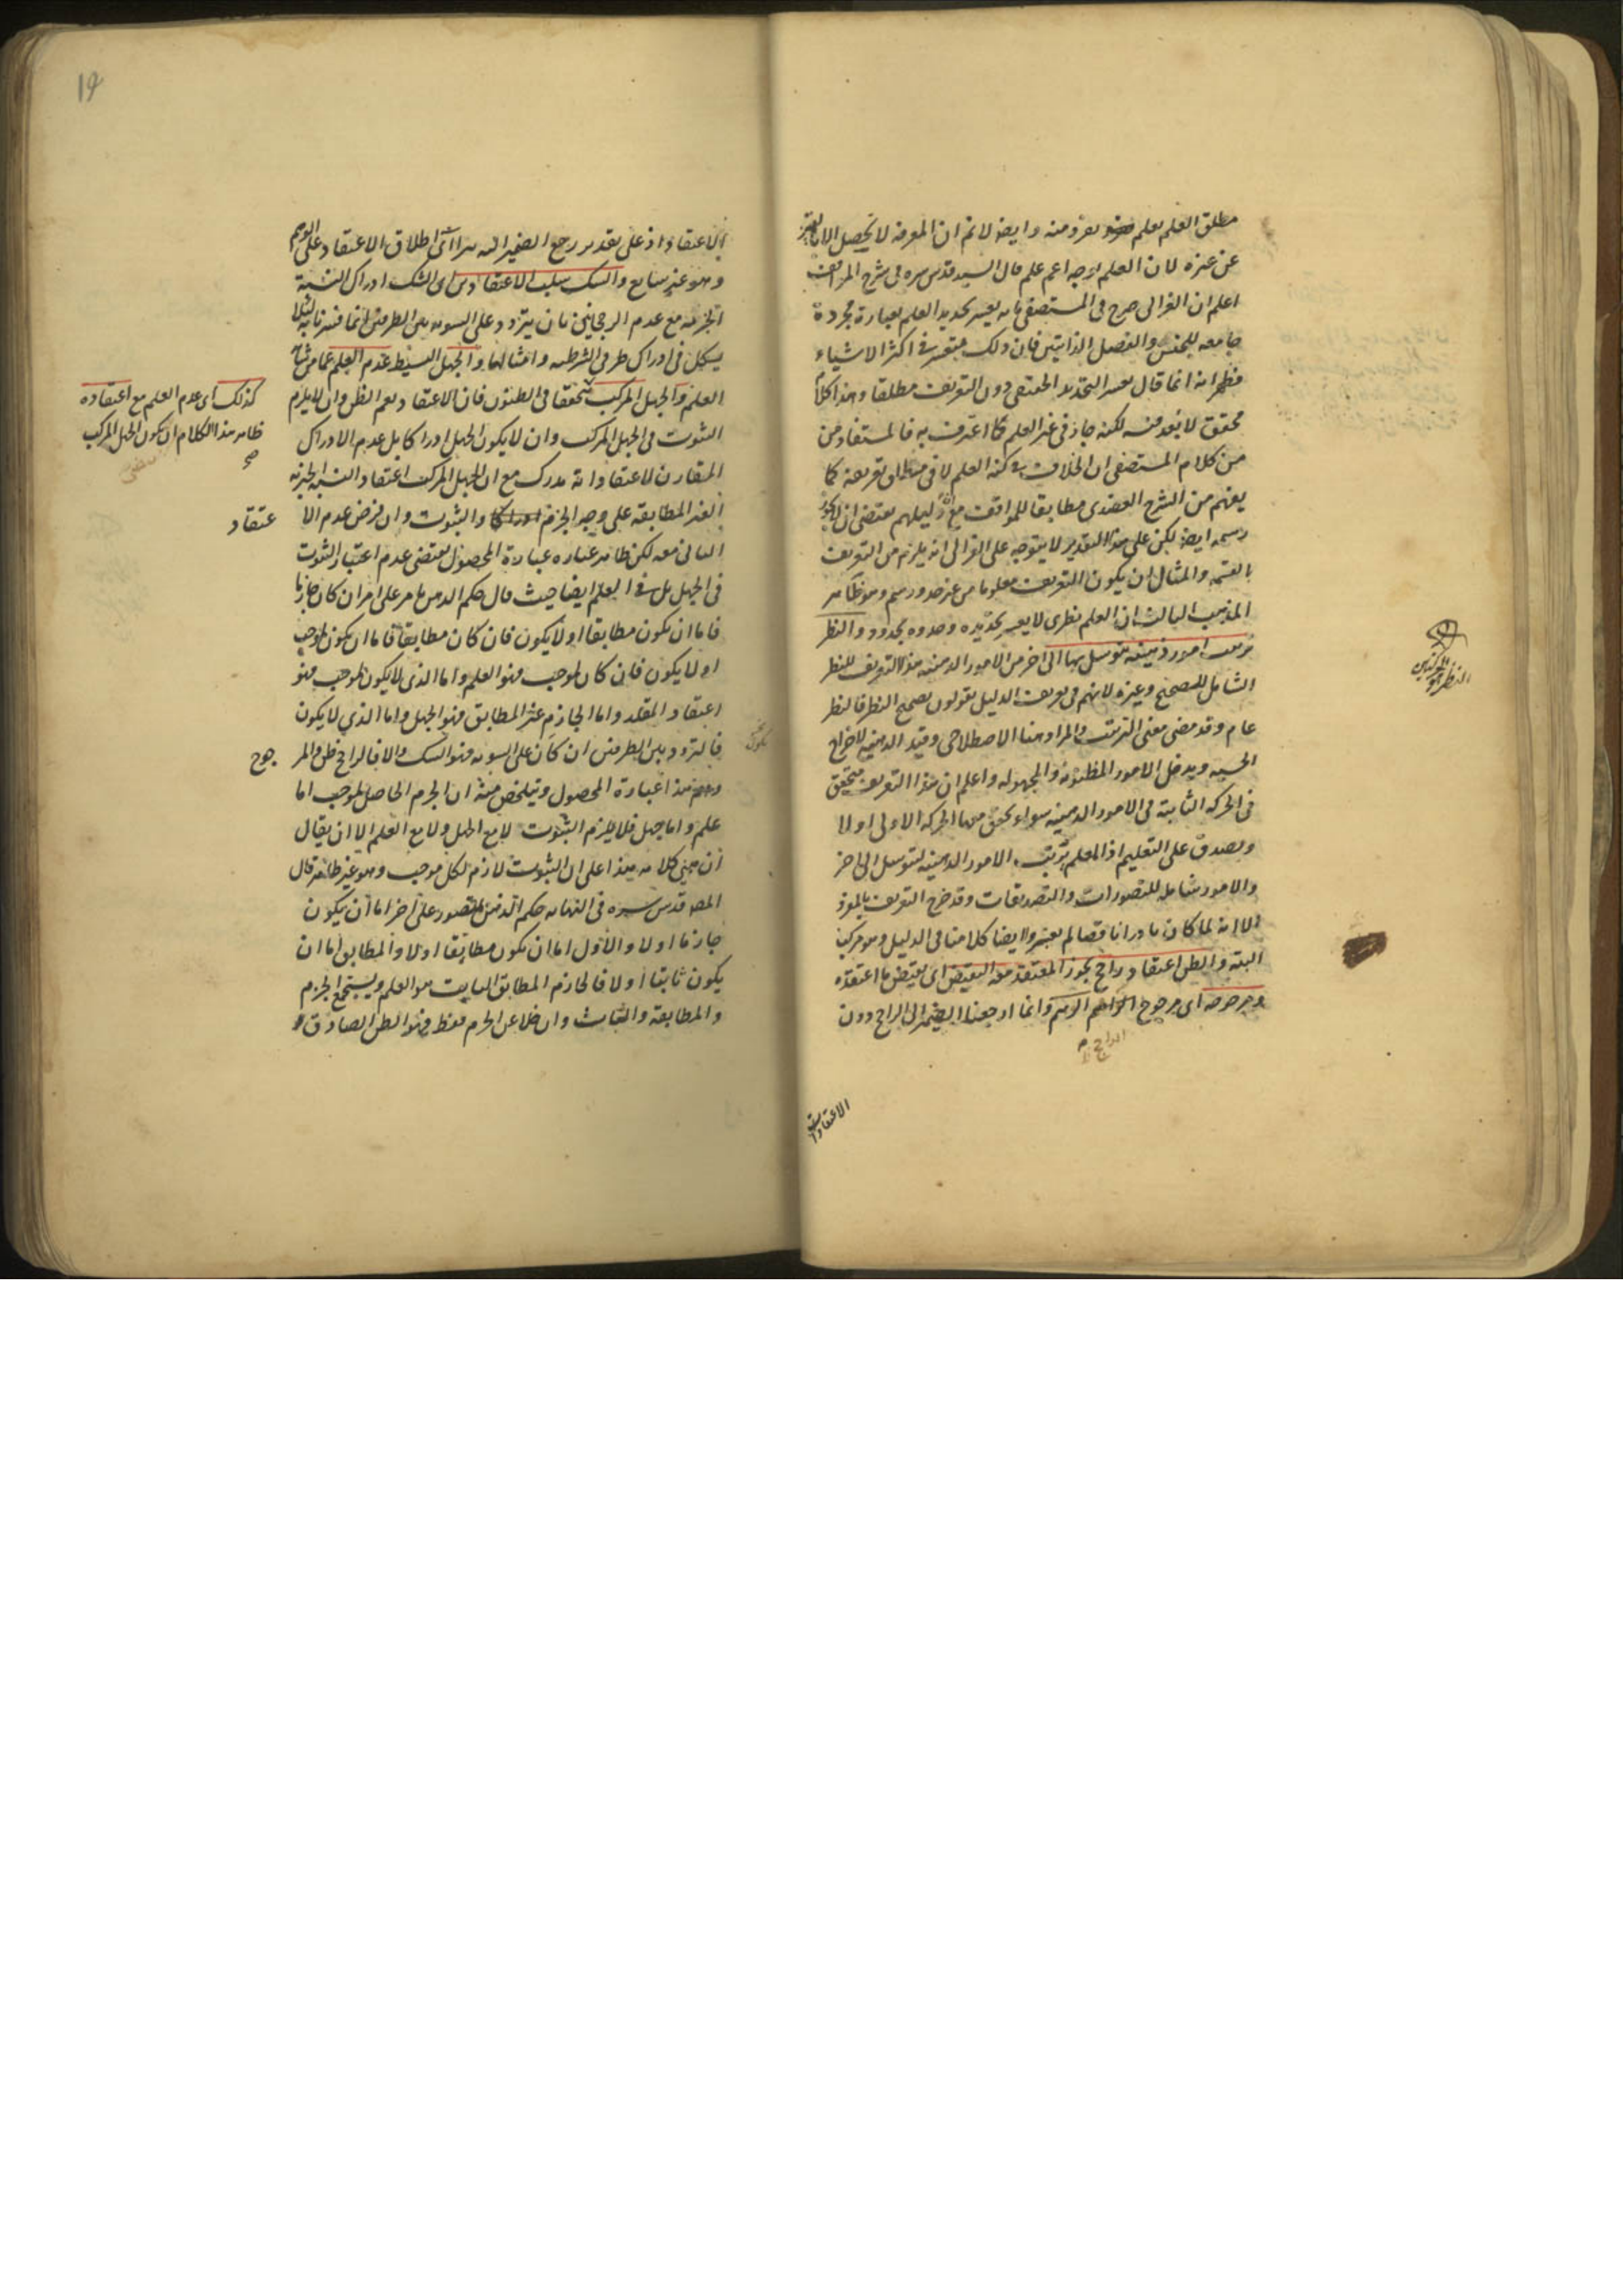 مطلق العلم بعلم بفرد منه وايضا لا نم ان المعرفة لا تحصل الا
عن غيره لان العلم بوجه اعم علم قال السيد قدس سره فى شرح المواقف
اعلم ان الغزالى صرح فى المستصفى بانه يعسر تحديد العلم بعبارة محررة
جامعه للجنس والفصل الذاتيين فان ذلك متعسر فى اكثر الاشياء
فظهر انه انما قال بعسر التحديد الحقيقى دون التعريف مطلقا وهذا كلام
محقق لا بعد فيه لكنه جار فى غير العلم كما اعترف به فالمستفاد من
من كلام المستصفى ان الخلاف فى كنه العلم لا فى تعريفه كما
يفهم من الشرح العضدى مطابقا للمواقف مع ان دليلهم يقتضى ان
رسمه ايضا لكن على هذا التقدير لا يتوجه على الغزالى انه يلزم من التعريف
بالقسمة والمثال ان يكون التعريف معلوما من غير حد ورسم وهو ظاهر
المذهب الثالث ان العلم نظرى لا يعسر تحديده وحدوه بحدود والنظر
ترتيب امور ذهنية يتوسل بها الى اخر من الامور الذهنيه هذا التعريف للنظر
الشامل للصحيح وغيره لانهم فى تعريف الدليل يقولون بصحيح النظر فالنظر
عام وقد مضى معنى الترتيب والمراد هنا الاصطلاحى وقيد الذهنيه لاخراج
الحسيه ويدخل الامور المظنونه والمجهوله واعلم ان هذا التعريف يتحقق
فى الحركه الثانية فى الامور الذهنيه سواء تحقق معها الحركه الاولى او لا
ويصدق على التعليم اذ المعلم يرتب الامور الذهنيه ليتوسل الى اخر
والامور شامله للتصورات والتصديقات وقد خرج التعريف بالمفرد
الا انه لما كان نادرا ناقصا لم يعتبر وايضا كلامنا فى الدليل وهو مركب
البته والظن اعتقاد راجح يجوز المعتقد معه النقيض اى نقيض ما اعتقده
ومرجوحه اى مرجوح الراجح الوهم وانما ارجعنا الضمير الى الراجح دون
الراجح
الاعتقاد
النظر
19
الاعتقاد اذ على تقدير رجع الضمير اليه اطلاق الاعتقاد على الوهم
وهو غير سايع والشك سلب الاعتقادين اى الشك ادراك النسبة
الجزميه مع عدم الرجحانين بان يتردد على السويه بين الطرفين انما فسرنا به لئلا
يشكل فى ادراك طرفى الشرطيه وامثالها والجهل البسيط عدم العلم عما من شانه
العلم والجهل المركب متحققا فى الظنون فان الاعتقاد يعم الظن وان لا يلزم
الثبوت فى الجهل المركب وان لا يكون الجهل ادراكا بل عدم الادراك
المقارن لاعتقاد انه مدرك مع ان الجهل المركب اعتقاد النسبة الجزميه
الغير المطابقه على وجه الجزم والثبوت وان فرض عدم الا
عتقاد
الثانى معه لكن ظاهر عباره عبارة المحصول يقتضى عدم اعتبار الثبوت
فى الجهل بل فى العلم ايضا حيث قال حكم الذهن بامر على امر ان كان جازما
فاما ان يكون مطابقا او لا يكون فان كان مطابقا فاما ان يكون لموجب
او لا يكون فان كان لموجب فهو العلم واما الذى لا يكون لموجب فهو
اعتقاد المقلد واما الجازم غير المطابق فهو الجهل واما الذي لا يكون
فالتردد بين الطرفين ان كان على السويه فهو الشك والا فالراجح ظن والمر
جوح
وهم هذا عبارة المحصول ويتلخص منه ان الجزم الحاصل لموجب اما
علم واما جهل فلا يلزم الثبوت لا مع الجهل ولا مع العلم الا ان يقال
ان مبنى كلامه هذا على ان الثبوت لازم لكل موجب وهو غير ظاهر قال
المصـ قدس سره فى النهايه حكم الذهن بمتصور على اخر اما ان يكون
جازما او لا والاول اما ان يكون مطابقا او لا والمطابق اما ان
يكون ثابتا او لا فالجازم المطابق الثابت هو العلم ويستجمع الجزم
والمطابقه والثبات وان خلا عن الجزم فقط فهو الظن الصادق و
كذلك اى عدم العلم مع اعتقاده
ظاهر هذا الكلام ان يكون الجهل المركب
صح